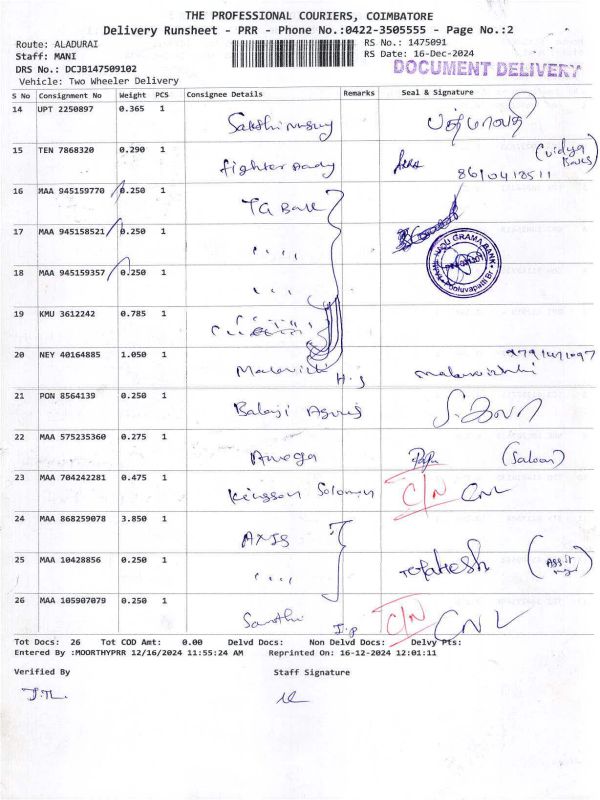 THE PROFESSIONAL COURIERS, COIMBATORE
Delivery Runsheet - PRR - Phone No.:0422-3505555 - Page No.:2
Route: ALADURAI RS No.: 1475091
Staff: MANI RS Date: 16-Dec-2024
DRS No.: DCJB147509102 DOCUMENT DELIVERY
Vehicle: Two Wheeler Delivery
S No Consignment No Weight PCS Consignee Details Remarks Seal & Signature
14 UPT 2250897 0.365 1 பத்மாவதி
15 TEN 7868320 0.290 1 fighter (Vidya
8610418511
16 MAA 945159770 0.250 1 TG Bank
17 MAA 945158521 0.250 1 ,, ,,
GRAMA BANK
18 MAA 945159357 0.250 1 ,, ,,
19 KMU 3612242 0.785 1
20 NEY 40164885 1.050 1 H.S
21 PON 8564139 0.250 1 Balaji
22 MAA 575235360 0.275 1 Amega (Saloon)
23 MAA 704242281 0.475 1 Kingson Solomon C/N CNL
24 MAA 868259078 3.850 1 AXIS
25 MAA 10428856 0.250 1 ,, ,,
26 MAA 105907079 0.250 1 Santhi C/N CNL
Tot Docs: 26 Tot COD Amt: 0.00 Delvd Docs: Non Delvd Docs: Delvy Pts:
Entered By :MOORTHYPRR 12/16/2024 11:55:24 AM Reprinted On: 16-12-2024 12:01:11
Verified By Staff Signature